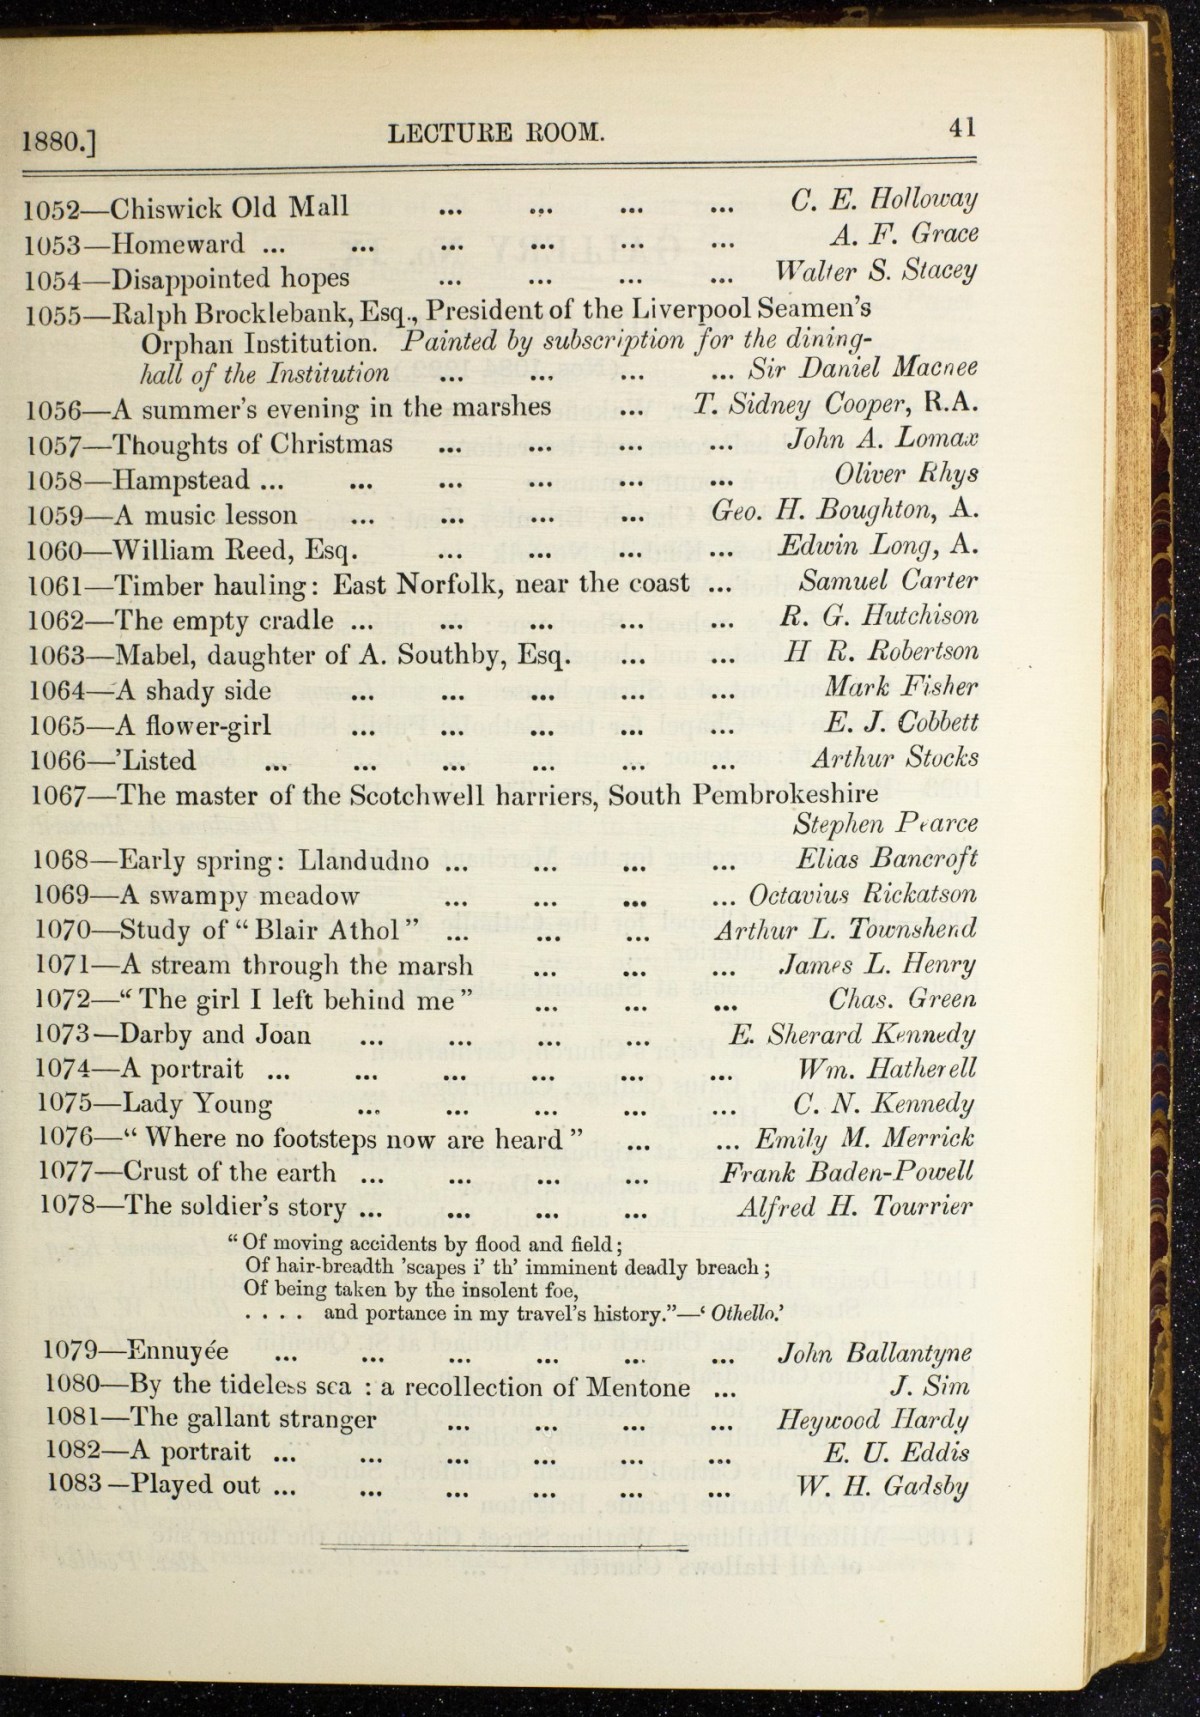 1880.] LECTURE ROOM. 41
1052—Chiswick Old Mall ... ... ... ... C. E. Holloway
1053—Homeward ... ... ... ... ... ... A. F. Grace
1054—Disappointed hopes ... ... ... ... Walter S. Stacey
1055—Ralph Brocklebank, Esq., President of the Liverpool Seamen's
Orphan Institution. Painted by subscription for the dining-
hall of the Institution ... ... ... ... Sir Daniel Macnee
1056—A summer's evening in the marshes ... T. Sidney Cooper, R.A.
1057—Thoughts of Christmas ... ... ... ... John A. Lomax
1058—Hampstead ... ... ... ... ... ... Oliver Rhys
1059—A music lesson ... ... ... ... Geo. H. Boughton, A.
1060—William Reed, Esq. ... ... ... ... Edwin Long, A.
1061—Timber hauling: East Norfolk, near the coast ... Samuel Carter
1062—The empty cradle ... ... ... ... ... R. G. Hutchison
1063—Mabel, daughter of A. Southby, Esq. ... ... H R. Robertson
1064—A shady side ... ... ... ... ... Mark Fisher
1065—A flower-girl ... ... ... ... ... E. J. Cobbett
1066—'Listed ... ... ... ... ... ... Arthur Stocks
1067—The master of the Scotchwell harriers, South Pembrokeshire
Stephen Pearce
1068—Early spring: Llandudno ... ... ... ... Elias Bancroft
1069—A swampy meadow ... ... ... ... Octavius Rickatson
1070—Study of "Blair Athol" ... ... ... Arthur L. Townshend
1071—A stream through the marsh ... ... ... James L. Henry
1072—"The girl I left behind me" ... ... ... Chas. Green
1073—Darby and Joan ... ... ... ... E. Sherard Kennedy
1074—A portrait ... ... ... ... ... ... Wm. Hatherell
1075—Lady Young ... ... ... ... ... C. N. Kennedy
1076—"Where no footsteps now are heard" ... ... Emily M. Merrick
1077—Crust of the earth ... ... ... ... Frank Baden-Powell
1078—The soldier's story ... ... ... ... Alfred H. Tourrier
"Of moving accidents by flood and field;
Of hair-breadth 'scapes i' th' imminent deadly breach;
Of being taken by the insolent foe,
. . . . and portance in my travel's history."—'Othello.'
1079—Ennuyée ... ... ... ... ... ... John Ballantyne
1080—By the tideless sea : a recollection of Mentone ... J. Sim
1081—The gallant stranger ... ... ... ... Heywood Hardy
1082—A portrait ... ... ... ... ... ... E. U. Eddis
1083—Played out ... ... ... ... ... ... W. H. Gadsby